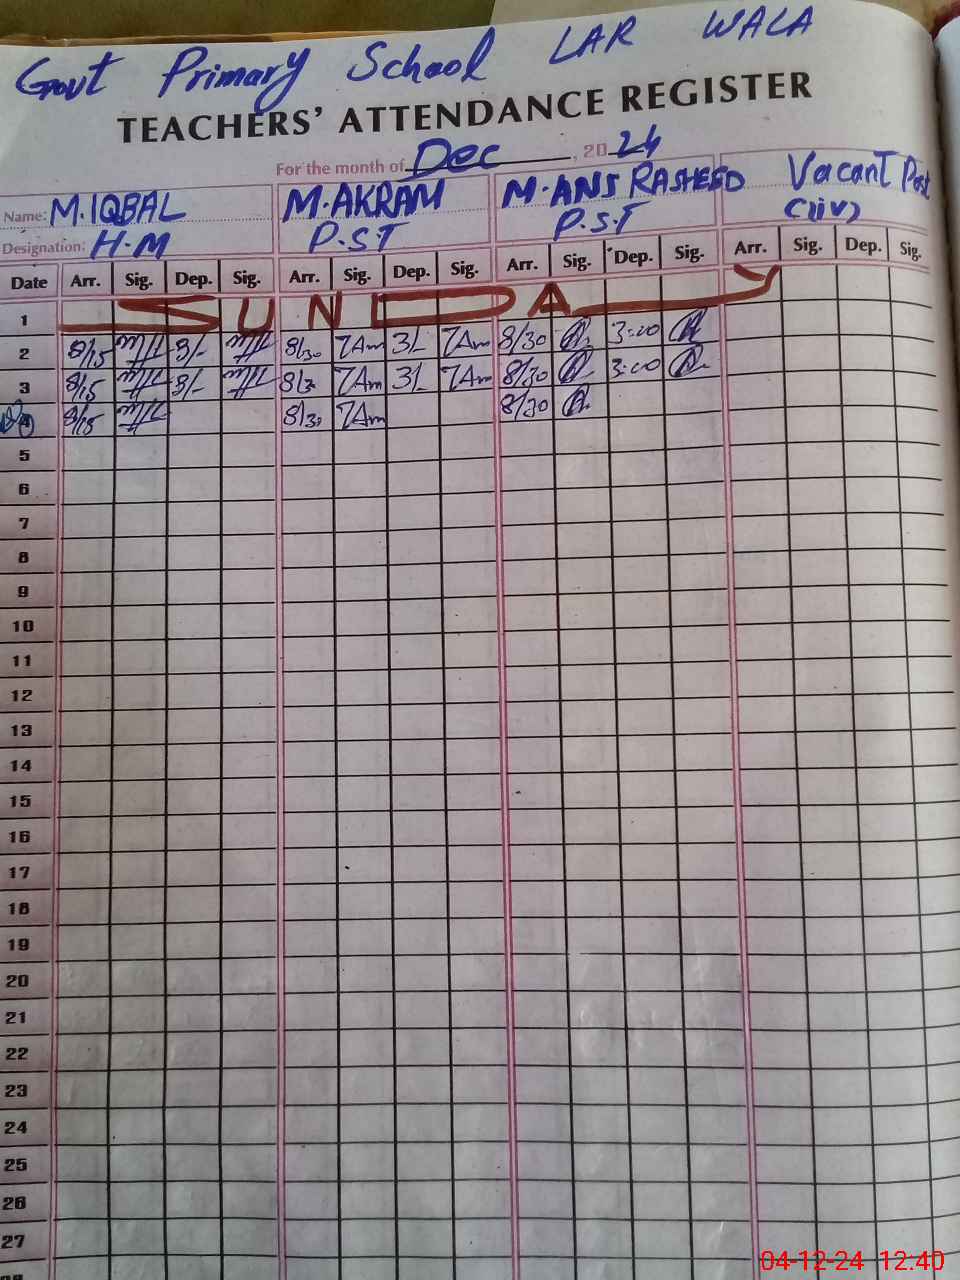 Govt Primary School LAR WALA
TEACHERS' ATTENDANCE REGISTER
For the month of Dec, 2024
Name: M.IQBAL M.AKRAM M.ANS RASHEED Vacant Post
Designation: H.M P.S.T P.S.T (iv)
Date Arr. Sig. Dep. Sig. Arr. Sig. Dep. Sig. Arr. Sig. Dep. Sig. Arr. Sig. Dep. Sig.
1 SUNDAY
2 8/15 3/- 8/30 3/- 8/30 3:00
3 8/15 3/- 8/3 3/- 8/30 3:00
4 8/15 8/30 8/30
5
6
7
8
9
10
11
12
13
14
15
16
17
18
19
20
21
22
23
24
25
26
27
04-12-24 12:40